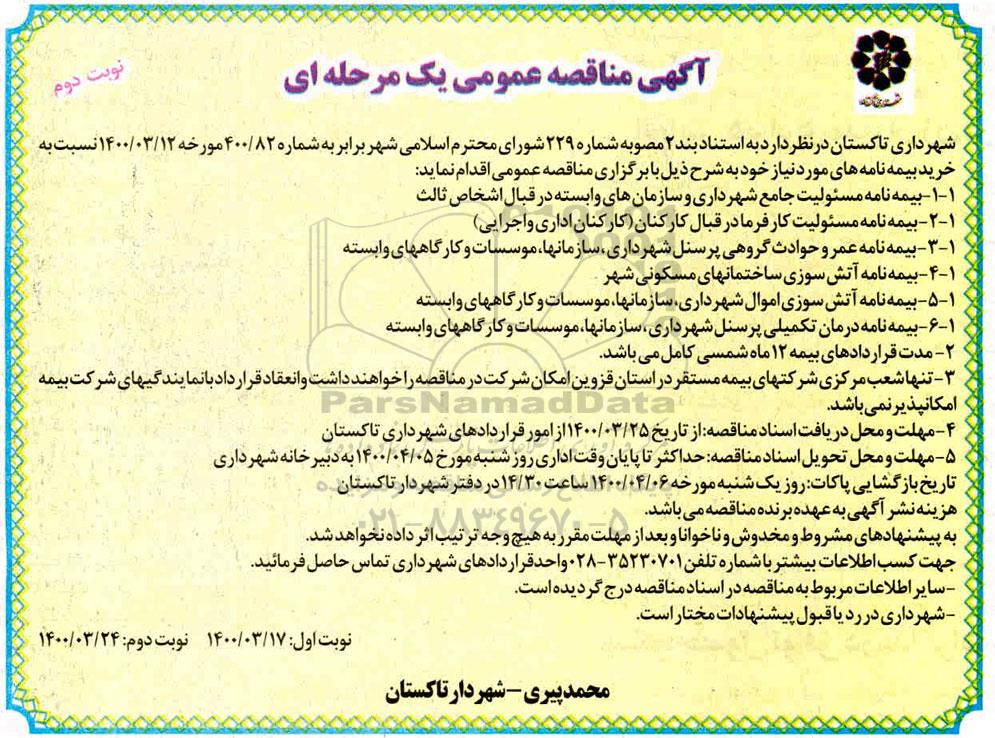 آگهی مناقصه عمومی یک مرحله ای
نوبت دوم
شهرداری تاکستان درنظر دارد به استناد بند۲ مصوبه شماره ۲۲۹ شورای محترم اسلامی شهر برابر به شماره ۴۰۰/۸۲ مورخه ۱۴۰۰/۰۳/۱۲ نسبت به
خرید بیمه نامه های مورد نیاز خود به شرح ذیل با برگزاری مناقصه عمومی اقدام نماید:
۱-۱- بیمه نامه مسئولیت جامع شهرداری و سازمان های وابسته در قبال اشخاص ثالث
۲-۱- بیمه نامه مسئولیت کارفرما در قبال کارکنان (کارکنان اداری واجرایی)
۳-۱- بیمه نامه عمر و حوادث گروهی پرسنل شهرداری، سازمانها، موسسات و کارگاههای وابسته
۴-۱- بیمه نامه آتش سوزی ساختمانهای مسکونی شهر
۵-۱- بیمه نامه آتش سوزی اموال شهرداری، سازمانها، موسسات و کارگاههای وابسته
۶-۱- بیمه نامه درمان تکمیلی پرسنل شهرداری، سازمانها، موسسات و کارگاههای وابسته
۲- مدت قراردادهای بیمه ۱۲ ماه شمسی کامل می باشد.
۳- تنها شعب مرکزی شرکتهای بیمه مستقر در استان قزوین امکان شرکت در مناقصه را خواهند داشت وانعقاد قرارداد با نمایندگیهای شرکت بیمه
امکانپذیر نمی باشد.
ParsNamadData
۴- مهلت و محل دریافت اسناد مناقصه: از تاریخ ۱۴۰۰/۰۳/۲۵ از امور قراردادهای شهرداری تاکستان
۵- مهلت و محل تحویل اسناد مناقصه: حداکثر تا پایان وقت اداری روز شنبه مورخ ۱۴۰۰/۰۴/۰۵ به دبیرخانه شهرداری
تاریخ بازگشایی پاکات: روز یک شنبه مورخه ۱۴۰۰/۰۴/۰۶ ساعت ۱۴/۳۰ در دفتر شهردار تاکستان
هزینه نشر آگهی به عهده برنده مناقصه می باشد.
۰۲۱-۸۸۳۴۹۶۷۰-۵
به پیشنهادهای مشروط و مخدوش و ناخوانا و بعد از مهلت مقرر به هیچ وجه ترتیب اثر داده نخواهد شد.
جهت کسب اطلاعات بیشتر با شماره تلفن ۳۵۲۳۰۷۰۱-۰۲۸ واحد قراردادهای شهرداری تماس حاصل فرمائید.
-سایر اطلاعات مربوط به مناقصه در اسناد مناقصه درج گردیده است.
-شهرداری در رد یا قبول پیشنهادات مختار است.
نوبت اول: ۱۴۰۰/۰۳/۱۷ نوبت دوم: ۱۴۰۰/۰۳/۲۴
محمد پیری - شهردار تاکستان